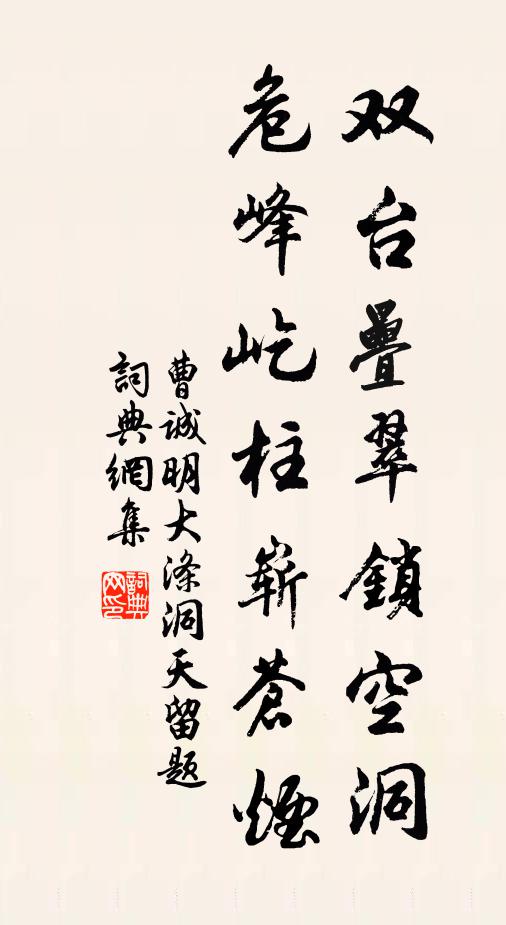 双台疊翠鎖空洞
危峰屹柱嶄蒼煙
曹诚明大涤洞天留题
詞典網集
詞典网印